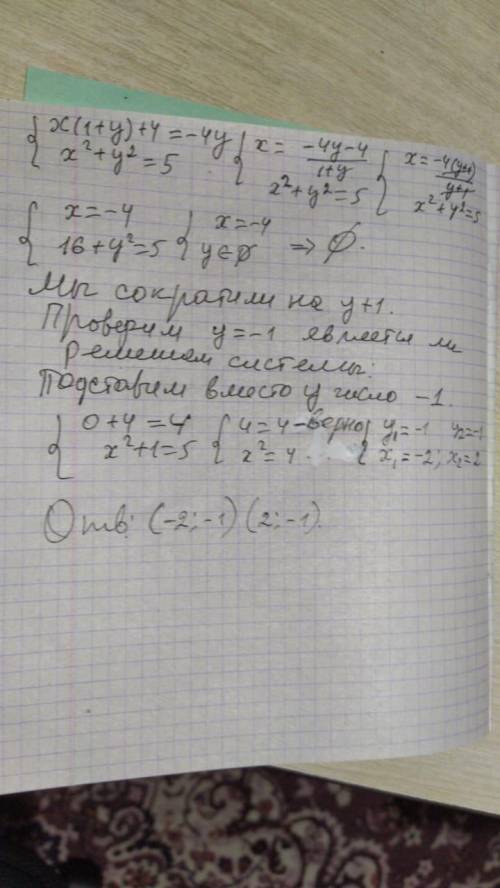 { x(1+y)+4=-4y { x= (-4y-4)/(1+y) { x= -4(y+1)/(y+1)
x²+y²=5 x²+y²=5 x²+y²=5
{ x=-4 { x=-4
16+y²=5 y∈∅ ⇒ ∅.
Мы сократили на y+1.
Проверим y=-1 является ли
решением системы:
Подставим вместо y число -1.
{ 0+4=4 { 4=4-верно { y₁=-1 y₂=-1
x²+1=5 x²=4 x₁=-2; x₂=2
Отв: (-2;-1) (2;-1).